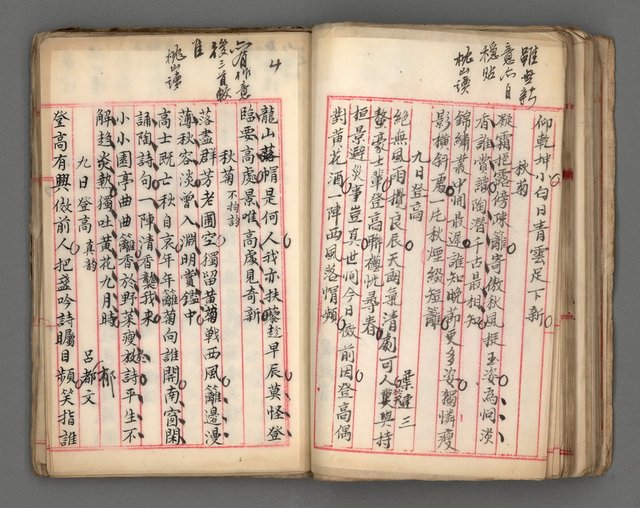 雖無新
意亦自
穩貼
桃山讀
仰乾坤小白日青雲足下新
秋菊
凝霜挹露傍珠籬寄傲秋風挺玉姿為問淡
香誰賞識陶潛千古最相知
錦繡叢中開最遲誰知晚節更多姿獨憐瘦
影橫斜處一片秋煙緞短籬
九日登高
葉連三
絕無風雨攪良辰天朗氣清劇可人萸與持
螯豪士輩登高聯極忱尋眷
桓景避災事豈真世間今日倣前因登高偶
對黃花酒一陣西風落帽頻
4
有作意
後三首較
佳
桃山讀
龍山落帽是何人我亦扶藜趁早辰莫怪登
臨要高處景唯高處見奇新
秋菊 不拘韵
落盡群芳老圃空獨留黃菊戰西風籬邊漫
薄秋容淡曾入淵明賞鑑中
高士既亡秋自哀年年籬菊向誰開南窗閑
誦陶詩句一陣清香襲我來
小小園亭曲曲籬香於野菜瘦於詩平生不
解趨炎熱獨吐黃花九月時
郁
九日登高 真韵
呂郁文
登高有興倣前人把盞吟詩矚目頻笑指誰